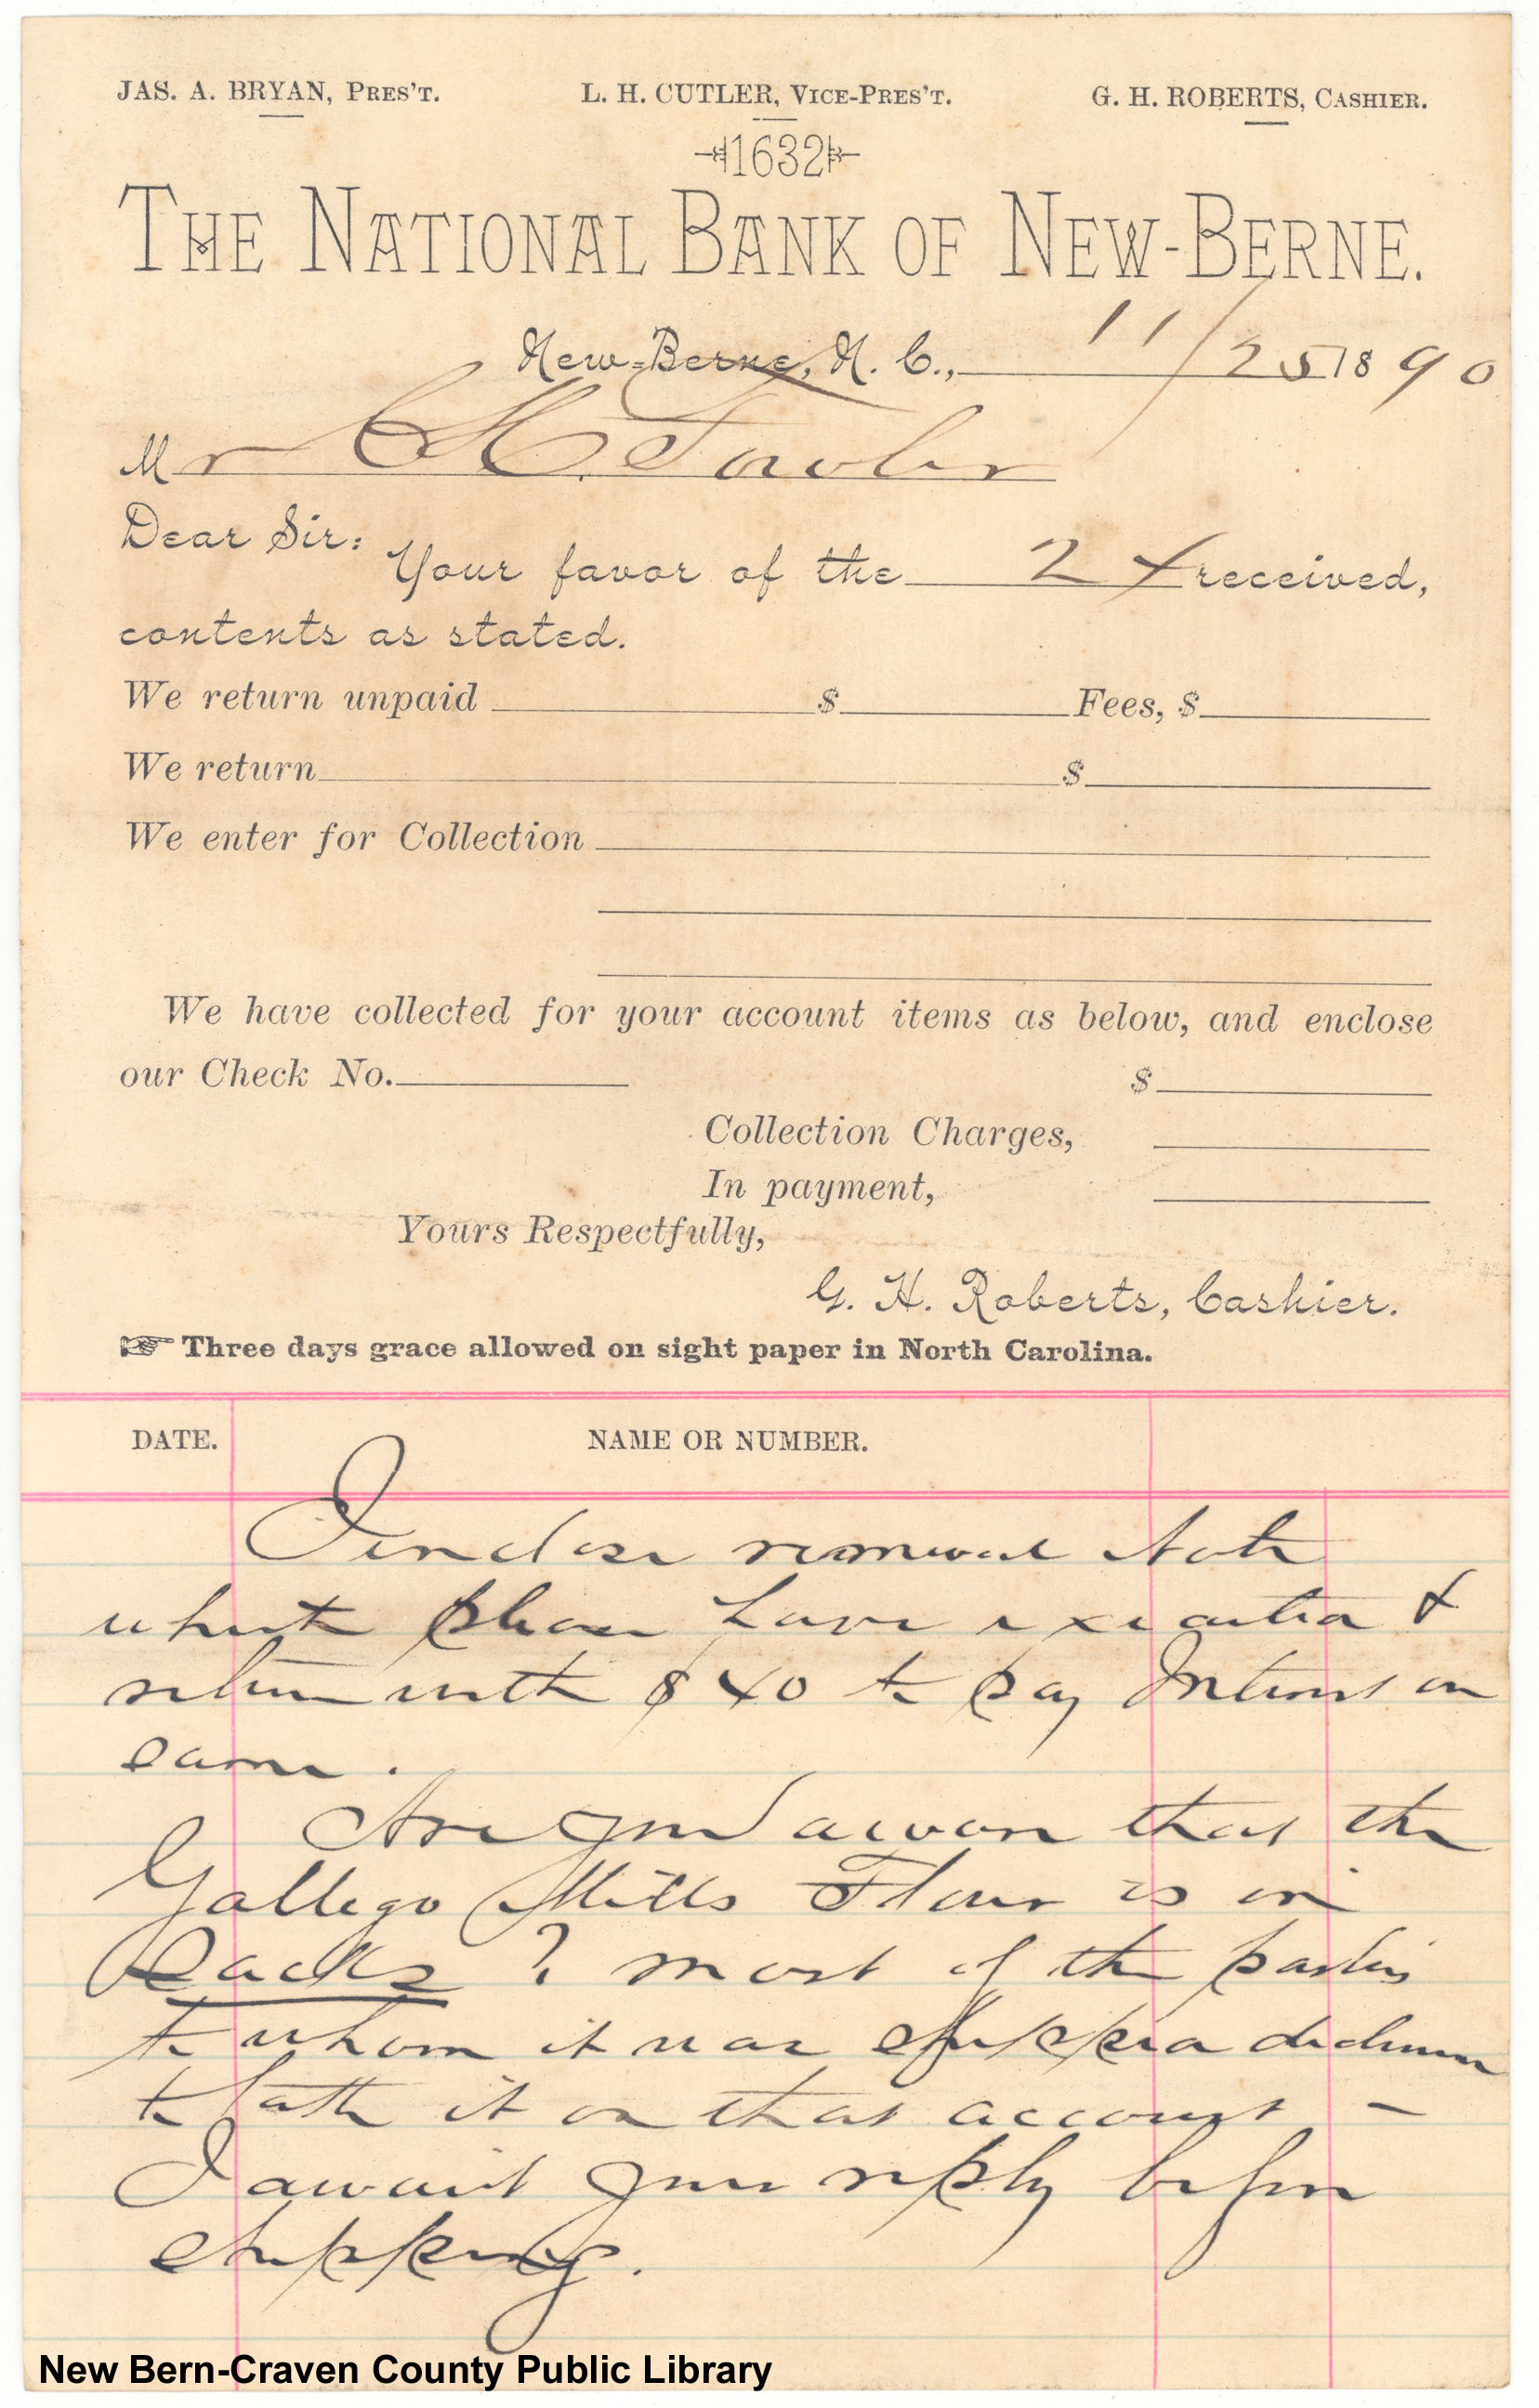 JAS. A. BRYAN, PRES'T. L. H. CUTLER, VICE-PRES'T. G. H. ROBERTS, CASHIER.
1632
THE NATIONAL BANK OF NEW-BERNE.
New-Berne, N. C., 11/25 1890
Mr C H Fowler
Dear Sir:
Your favor of the 24 received,
contents as stated.
We return unpaid $ Fees, $
We return $
We enter for Collection
We have collected for your account items as below, and enclose
our Check No. $
Collection Charges,
In payment,
Yours Respectfully,
G. H. Roberts, Cashier.
Three days grace allowed on sight paper in North Carolina.
DATE. NAME OR NUMBER.
I enclose renewal Note
which please have executed &
return with $40 to pay Interest on
same.
Are you aware that the
Gallego Mills Flour is in
Sacks? most of the parties
to whom it was shipped decline
to take it on that account -
I await your reply before
shipping.
New Bern-Craven County Public Library